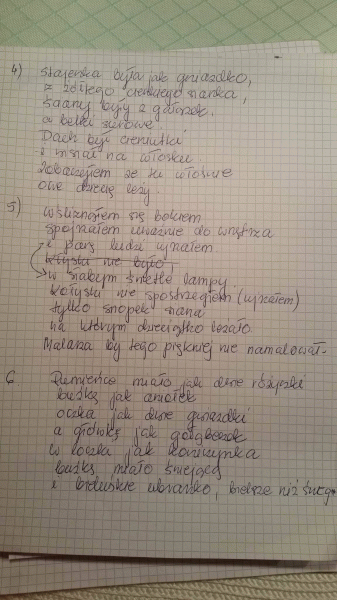 4) Stajenka była jak gniazdko,
z żółtego ciemnego sianka,
ściany były z gałązek,
a belki surowe.
Dach był cieniutki
i wisiał na włosku.
Zobaczyłem że tu właśnie
owe dziecię leży.
5) Wśliznąłem się bokiem
spojrzałem uważnie do wnętrza
i parę ludzi ujrzałem
kołyski nie było
w słabym świetle lampy
kołyski nie spostrzegłem (ujrzałem)
tylko snopek siana
na którym dzieciątko leżało.
Malarz by tego piękniej nie namalował.
6 Rumieńce miało jak dwie różyczki
buźkę jak aniołek
oczka jak dwie gwiazdki
a główkę jak gołąbeczek
w loczka jak
buźkę miało śmiejącą
i bieluśkie ubranko, bielsze niż śnieg.